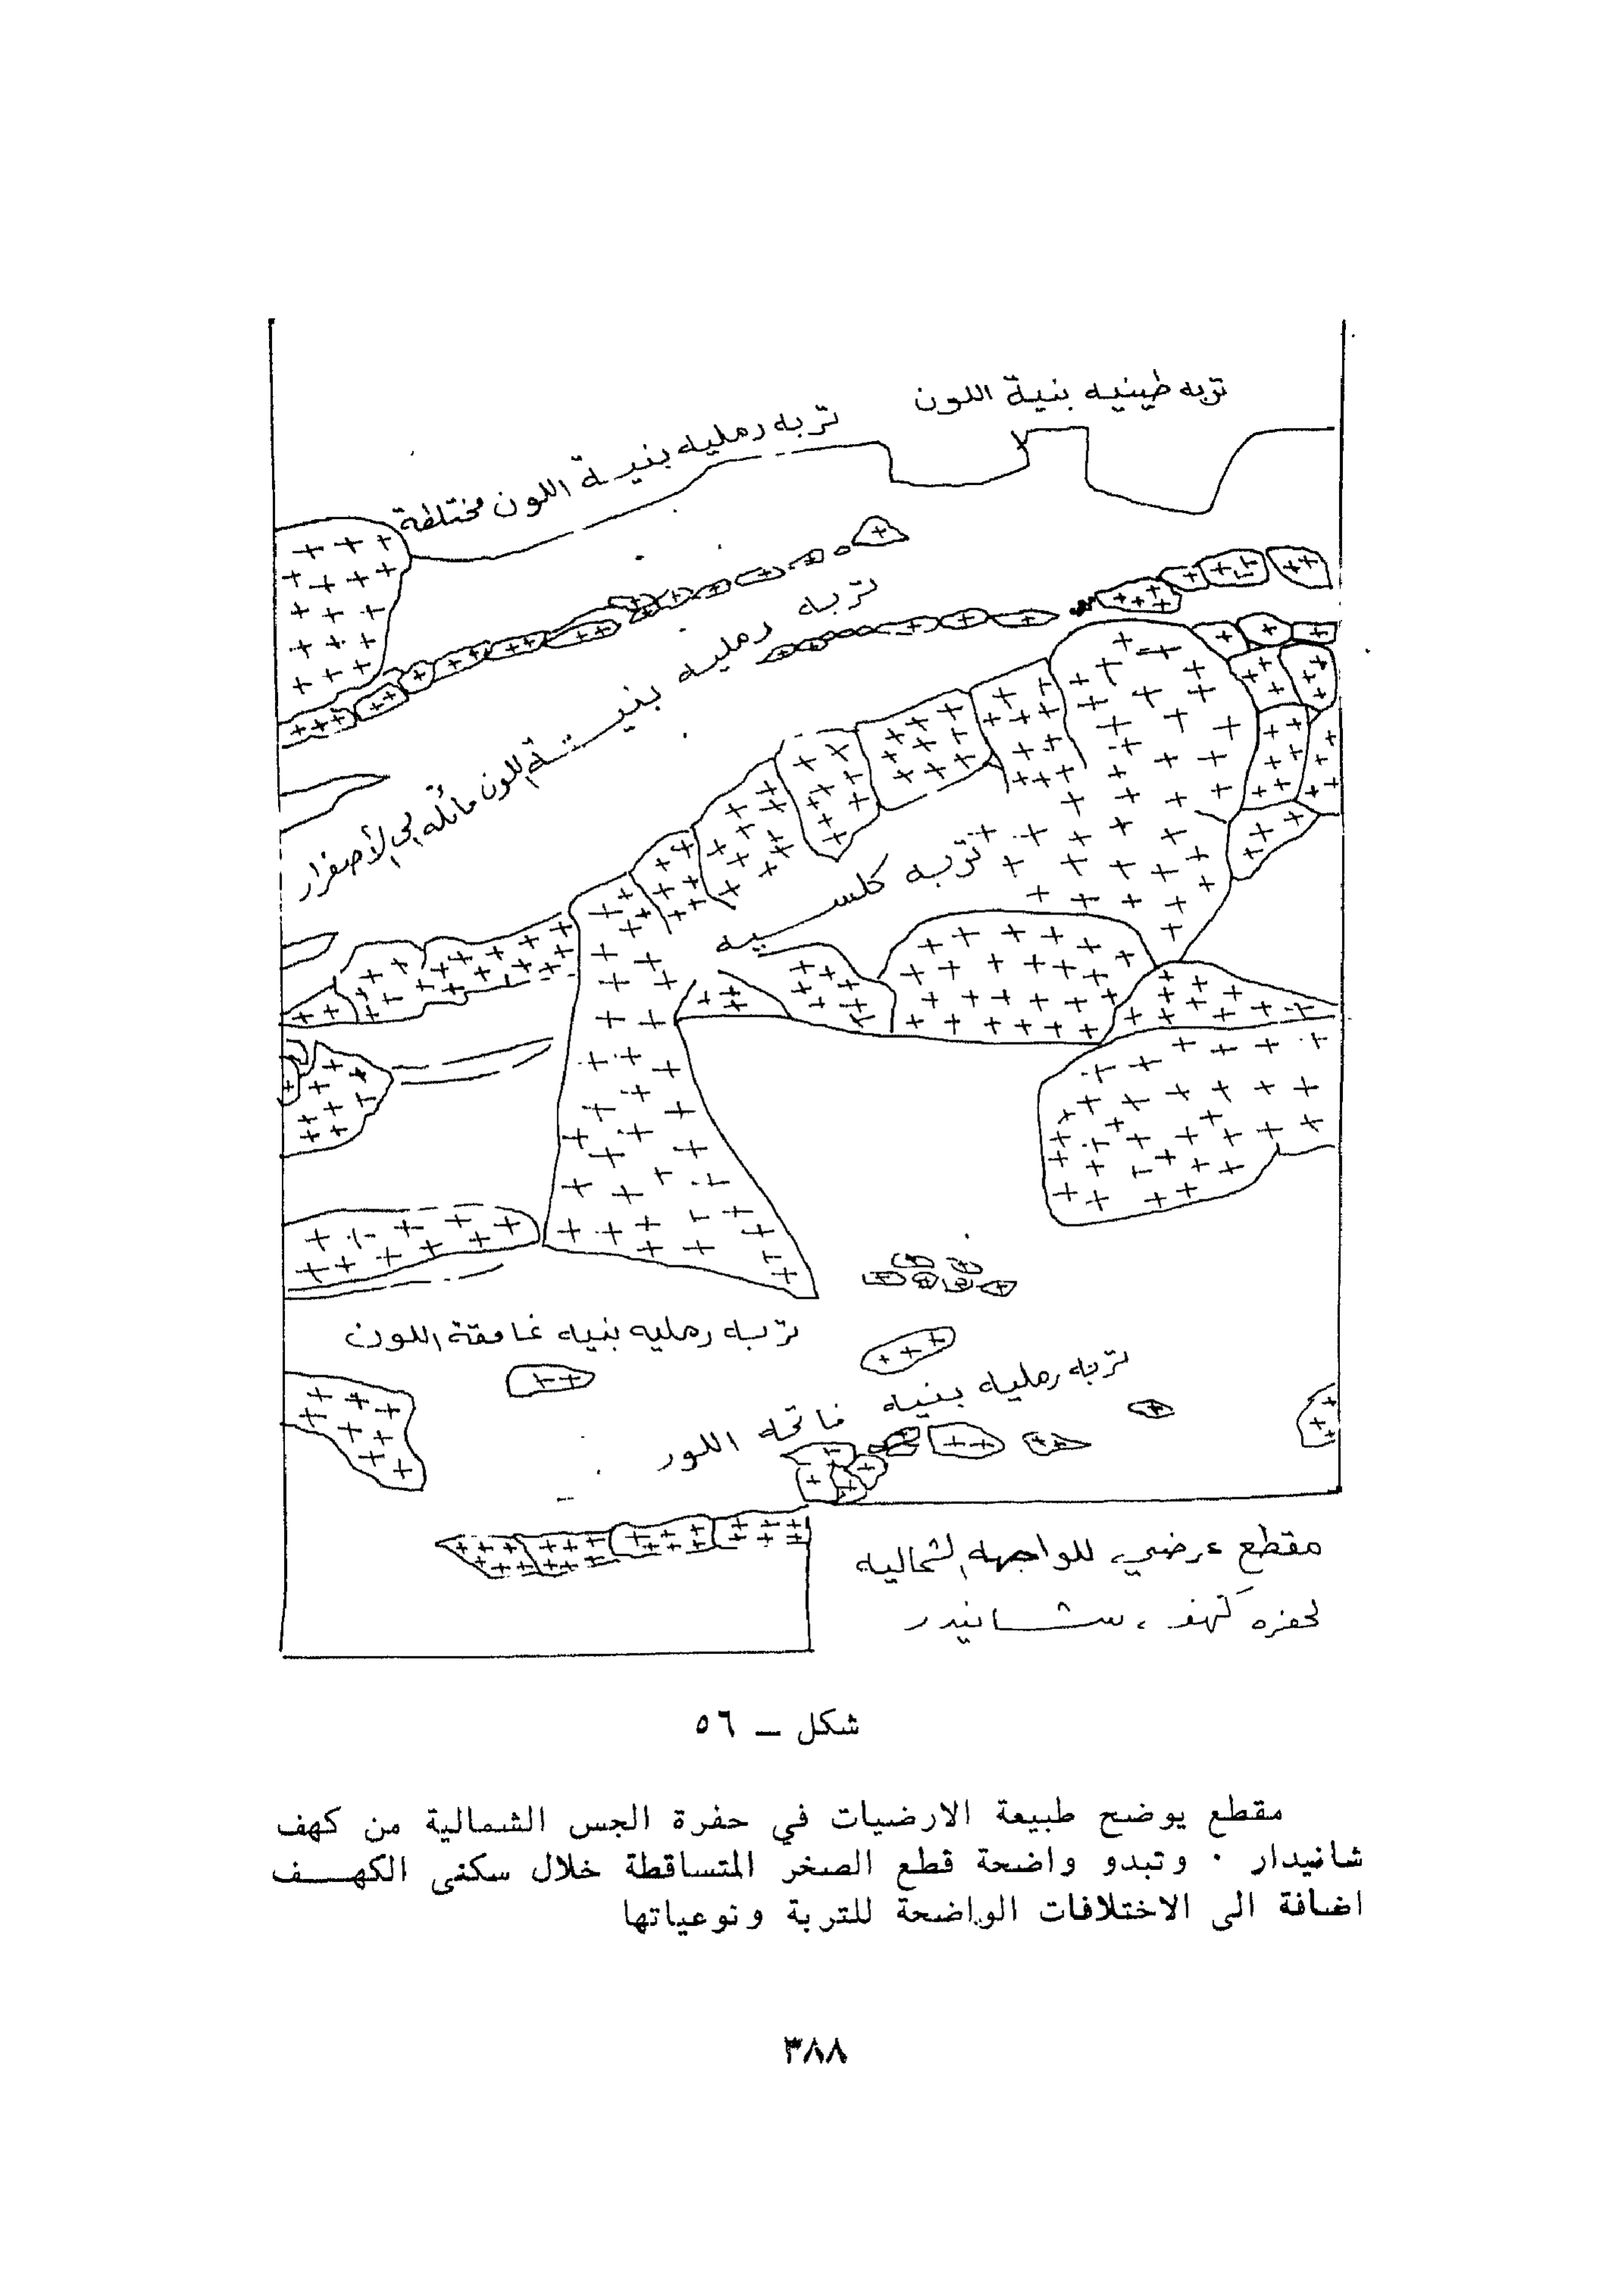 تربه طينيه بنية اللون
تربه رمليه بنية اللون مختلطة
تربه رمليه بنية اللون مائله الى الأصفرار
تربه كلسيه
تربه رمليه بنيه غامقة اللون
تربه رمليه بنيه فاتحه اللور
مقطع عرضي للواجهه الشماليه
لحفره كهف ، شانيدر
شكل ــ ٥٦
مقطع يوضح طبيعة الارضيات في حفرة الجس الشمالية من كهف
شانيدار ٠ وتبدو واضحة قطع الصخر المتساقطة خلال سكنى الكهــف
اضافة الى الاختلافات الواضحة للتربة ونوعياتها
٣٨٨